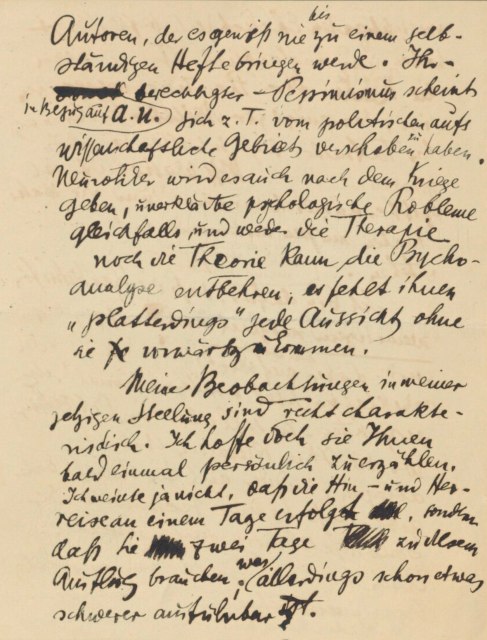 Autoren, der es gewiß nie bis zu einem selb-
ständigen Hefte bringen werde. Ihr-
berechtigter - Pessimismus scheint
in Bezug auf a. u. sich z. T. vom politischen aufs
wissenschaftliche Gebiet verschoben zu haben.
Neurotiker wird es auch nach dem Kriege
geben, unerklärte psychologische Probleme
gleichfalls, und weder die Therapie
noch die Theorie kann die Psycho-
analyse entbehren; es fehlt ihnen
„platterdings" jede Aussicht, ohne
sie vorwärtszukommen.
Meine Beobachtungen in meiner
jetzigen Stellung sind recht charakte-
ristisch. Ich hoffe doch sie Ihnen
bald einmal persönlich zu erzählen.
Ich meinte ja nicht, daß die Hin- und Her-
reise an einem Tage erfolgt, sondern
daß Sie zwei Tage zu diesem
Ausflug brauchen, was allerdings schon etwas
schwerer ausführbar ist.